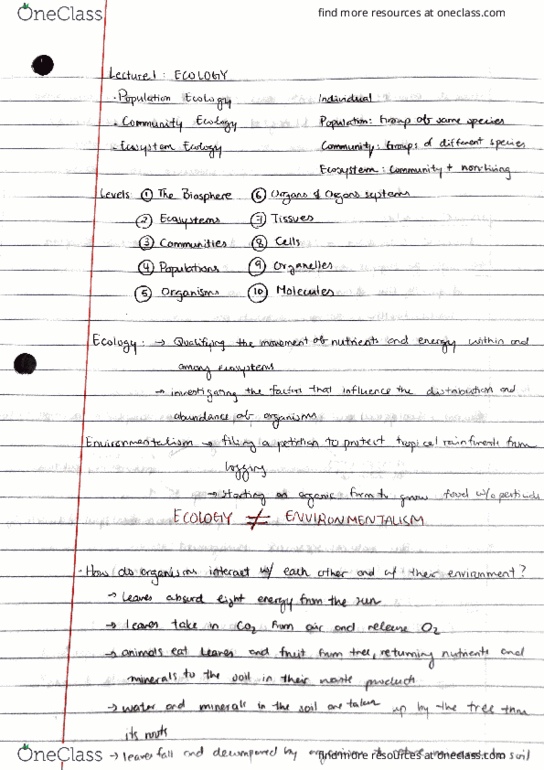 OneClass
find more resources at oneclass.com
Lecture 1 : ECOLOGY
· Population Ecology
Individual
· Community Ecology
Population: Group of same species
· Ecosystem Ecology
Community: Groups of different species
Ecosystem: Community + nonliving
Levels ① The Biosphere ⑥ Organs & Organs systems
② Ecosystems ⑦ Tissues
③ Communities ⑧ Cells
④ Populations ⑨ Organelles
⑤ Organisms ⑩ Molecules
Ecology: → Qualifying the movement of nutrients and energy within and
among ecosystems
→ investigating the factors that influence the distribution and
abundance of organisms
Environmentalism → filing a petition to protect tropical rainforests from
logging
→ starting an organic farm to grow food w/o
ECOLOGY ≠ ENVIRONMENTALISM
· How do organisms interact w/ each other and w/ their environment?
→ leaves absurd light energy from the sun
→ leaves take in CO2 from air and release O2
→ animals eat leaves and fruit from tree, returning nutrients and
minerals to the soil in their waste products
→ water and minerals in the soil are taken up by the tree thru
its roots
→ leaves fall and decomposed by soil
OneClass
find more resources at oneclass.com